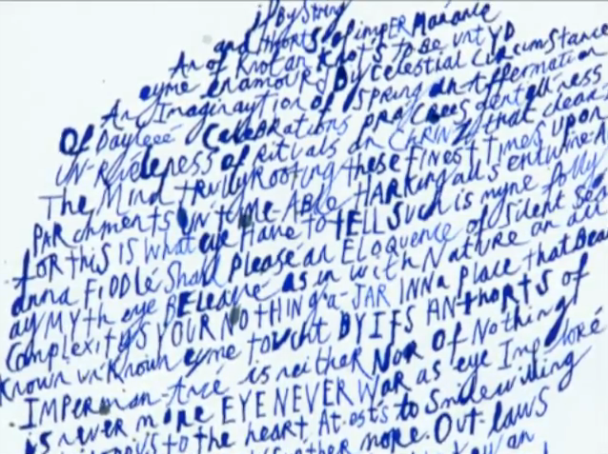 if By String
and thORTS of impERMANANCE
An of Knot an Knot's to BE UNTYD
eyme enamOURJD by Celestial CircumStance
An Imaginaytion of SPRING an Affermation
Of Dayleeé CeleBRations PRACtises gentellness
UN-RiveleNess of RITUALS an ChRINZ that clear
The Mind TRULLYRooting these FINEST Times upon
PARchments UNTIME-ABLE HARKing all's entwine-A
foR this IS What eye Have To tELL Such is myne folly
anna FIDDLé Shall Pleaséan ELoquence of Silent
ayMYth eye BELeave as in with NatuRe an all
COMPLexitYS YOUR NOTHiNg a-JAR INNa Place that Bea
Known unKnown eyme toUCht BY IFS AN thORTS of
IMPERman-ence is neither NoR Of Nothing
is never moRe EYE NEVER WaR as eye ImploRé
to the heart At-ests to Smilewilling
other moRe. Out-laws
an